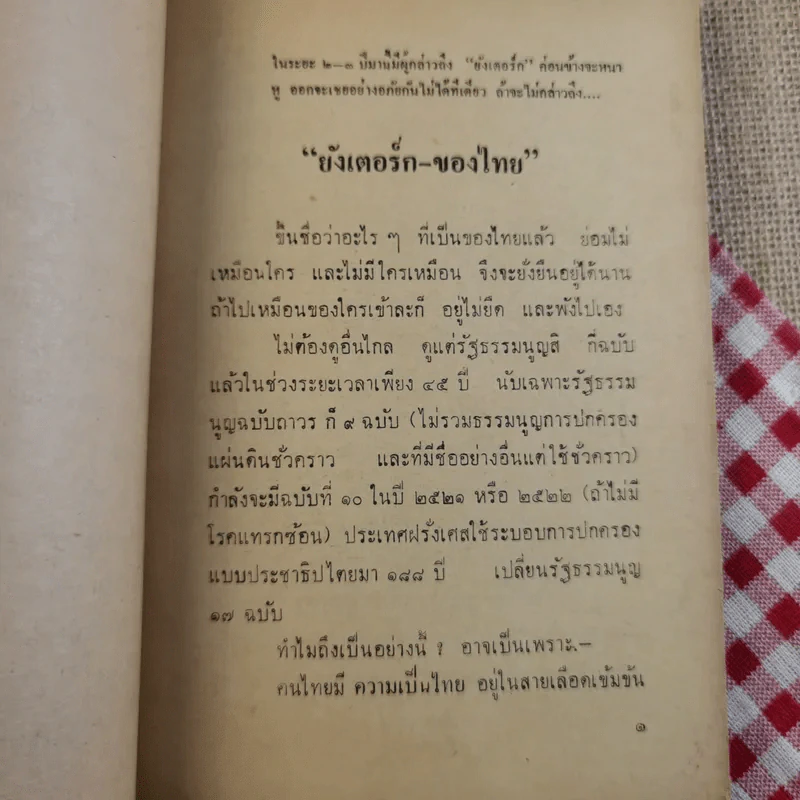 ในระยะ ๒–๓ ปีมานี้มีผู้กล่าวถึง “ยังเตอร์ก” ค่อนข้างจะหนา
หู ออกจะเชยอย่างอภัยกันไม่ได้ทีเดียว ถ้าจะไม่กล่าวถึง....
“ยังเตอร์ก–ของไทย”
ขึ้นชื่อว่าอะไร ๆ ที่เป็นของไทยแล้ว ย่อมไม่
เหมือนใคร และไม่มีใครเหมือน จึงจะยั่งยืนอยู่ได้นาน
ถ้าไปเหมือนของใครเข้าละก็ อยู่ไม่ยืด และพังไปเอง
ไม่ต้องดูอื่นไกล ดูแต่รัฐธรรมนูญสิ กี่ฉบับ
แล้วในช่วงระยะเวลาเพียง ๔๕ ปี นับเฉพาะรัฐธรรม
นูญฉบับถาวร ก็ ๙ ฉบับ (ไม่รวมธรรมนูญการปกครอง
แผ่นดินชั่วคราว และที่มีชื่ออย่างอื่นแต่ใช้ชั่วคราว)
กำลังจะมีฉบับที่ ๑๐ ในปี ๒๕๒๑ หรือ ๒๕๒๒ (ถ้าไม่มี
โรคแทรกซ้อน) ประเทศฝรั่งเศสใช้ระบอบการปกครอง
แบบประชาธิปไตยมา ๑๘๘ ปี เปลี่ยนรัฐธรรมนูญ
๑๗ ฉบับ
ทำไมถึงเป็นอย่างนี้ ? อาจเป็นเพราะ.–
คนไทยมี ความเป็นไทย อยู่ในสายเลือดเข้มข้น
๑